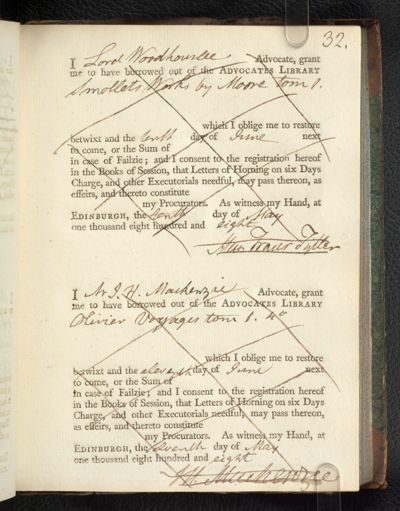 32.
I Lord Woodhouslee Advocate, grant
me to have borrowed out of the ADVOCATES LIBRARY
Smollets Works by Moore tom 1.
which I oblige me to restore
betwixt and the tenth day of June next
to come, or the Sum of
in case of Failzie; and I consent to the registration hereof
in the Books of Session, that Letters of Horning on six Days
Charge, and other Executorials needful, may pass thereon, as
effeirs, and thereto constitute
my Procurators. As witness my Hand, at
EDINBURGH, the tenth day of May
one thousand eight hundred and eight
Alexr Fraser Tytler
I Mr J. H. Mackenzie Advocate, grant
me to have borrowed out of the ADVOCATES LIBRARY
Olivier Voyages tom 1. 4o
which I oblige me to restore
betwixt and the eleventh day of June next
to come, or the Sum of
in case of Failzie; and I consent to the registration hereof
in the Books of Session, that Letters of Horning on six Days
Charge, and other Executorials needful, may pass thereon,
as effeirs, and thereto constitute
my Procurators. As witness my Hand, at
EDINBURGH, the eleventh day of May
one thousand eight hundred and eight
J H Mackenzie